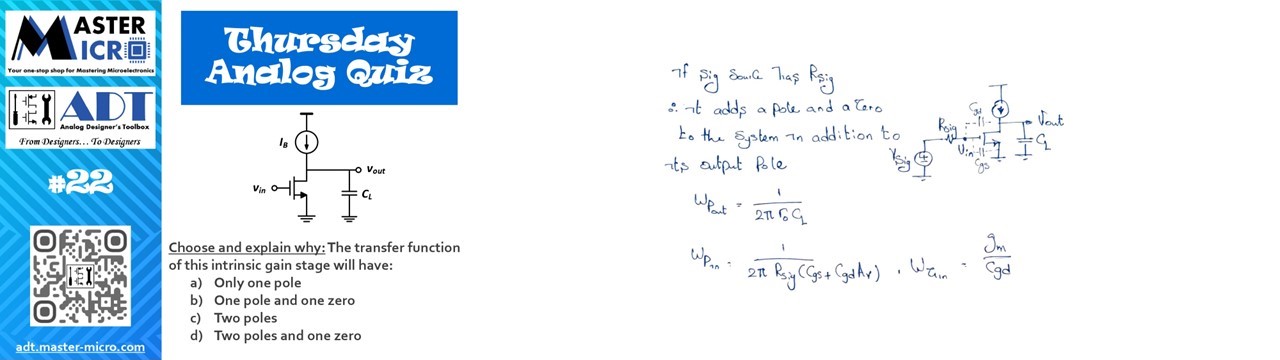 MASTER
MICRO
Your one-stop shop for Mastering Microelectronics
ADT
Analog Designer's Toolbox
From Designers... To Designers
#22
adt.master-micro.com
Thursday
Analog Quiz
IB
vout
vin
CL
Choose and explain why: The transfer function
of this intrinsic gain stage will have:
a) Only one pole
b) One pole and one zero
c) Two poles
d) Two poles and one zero
If sig source has Rsig
∴ it adds a pole and a zero
to the system in addition to
its output pole
ωPout = 1 / 2π ro CL
ωPin = 1 / 2π Rsig (Cgs + Cgd Av) , ωzin = gm / Cgd
Rsig
Vout
Vin
CL
Vsig
Cgs